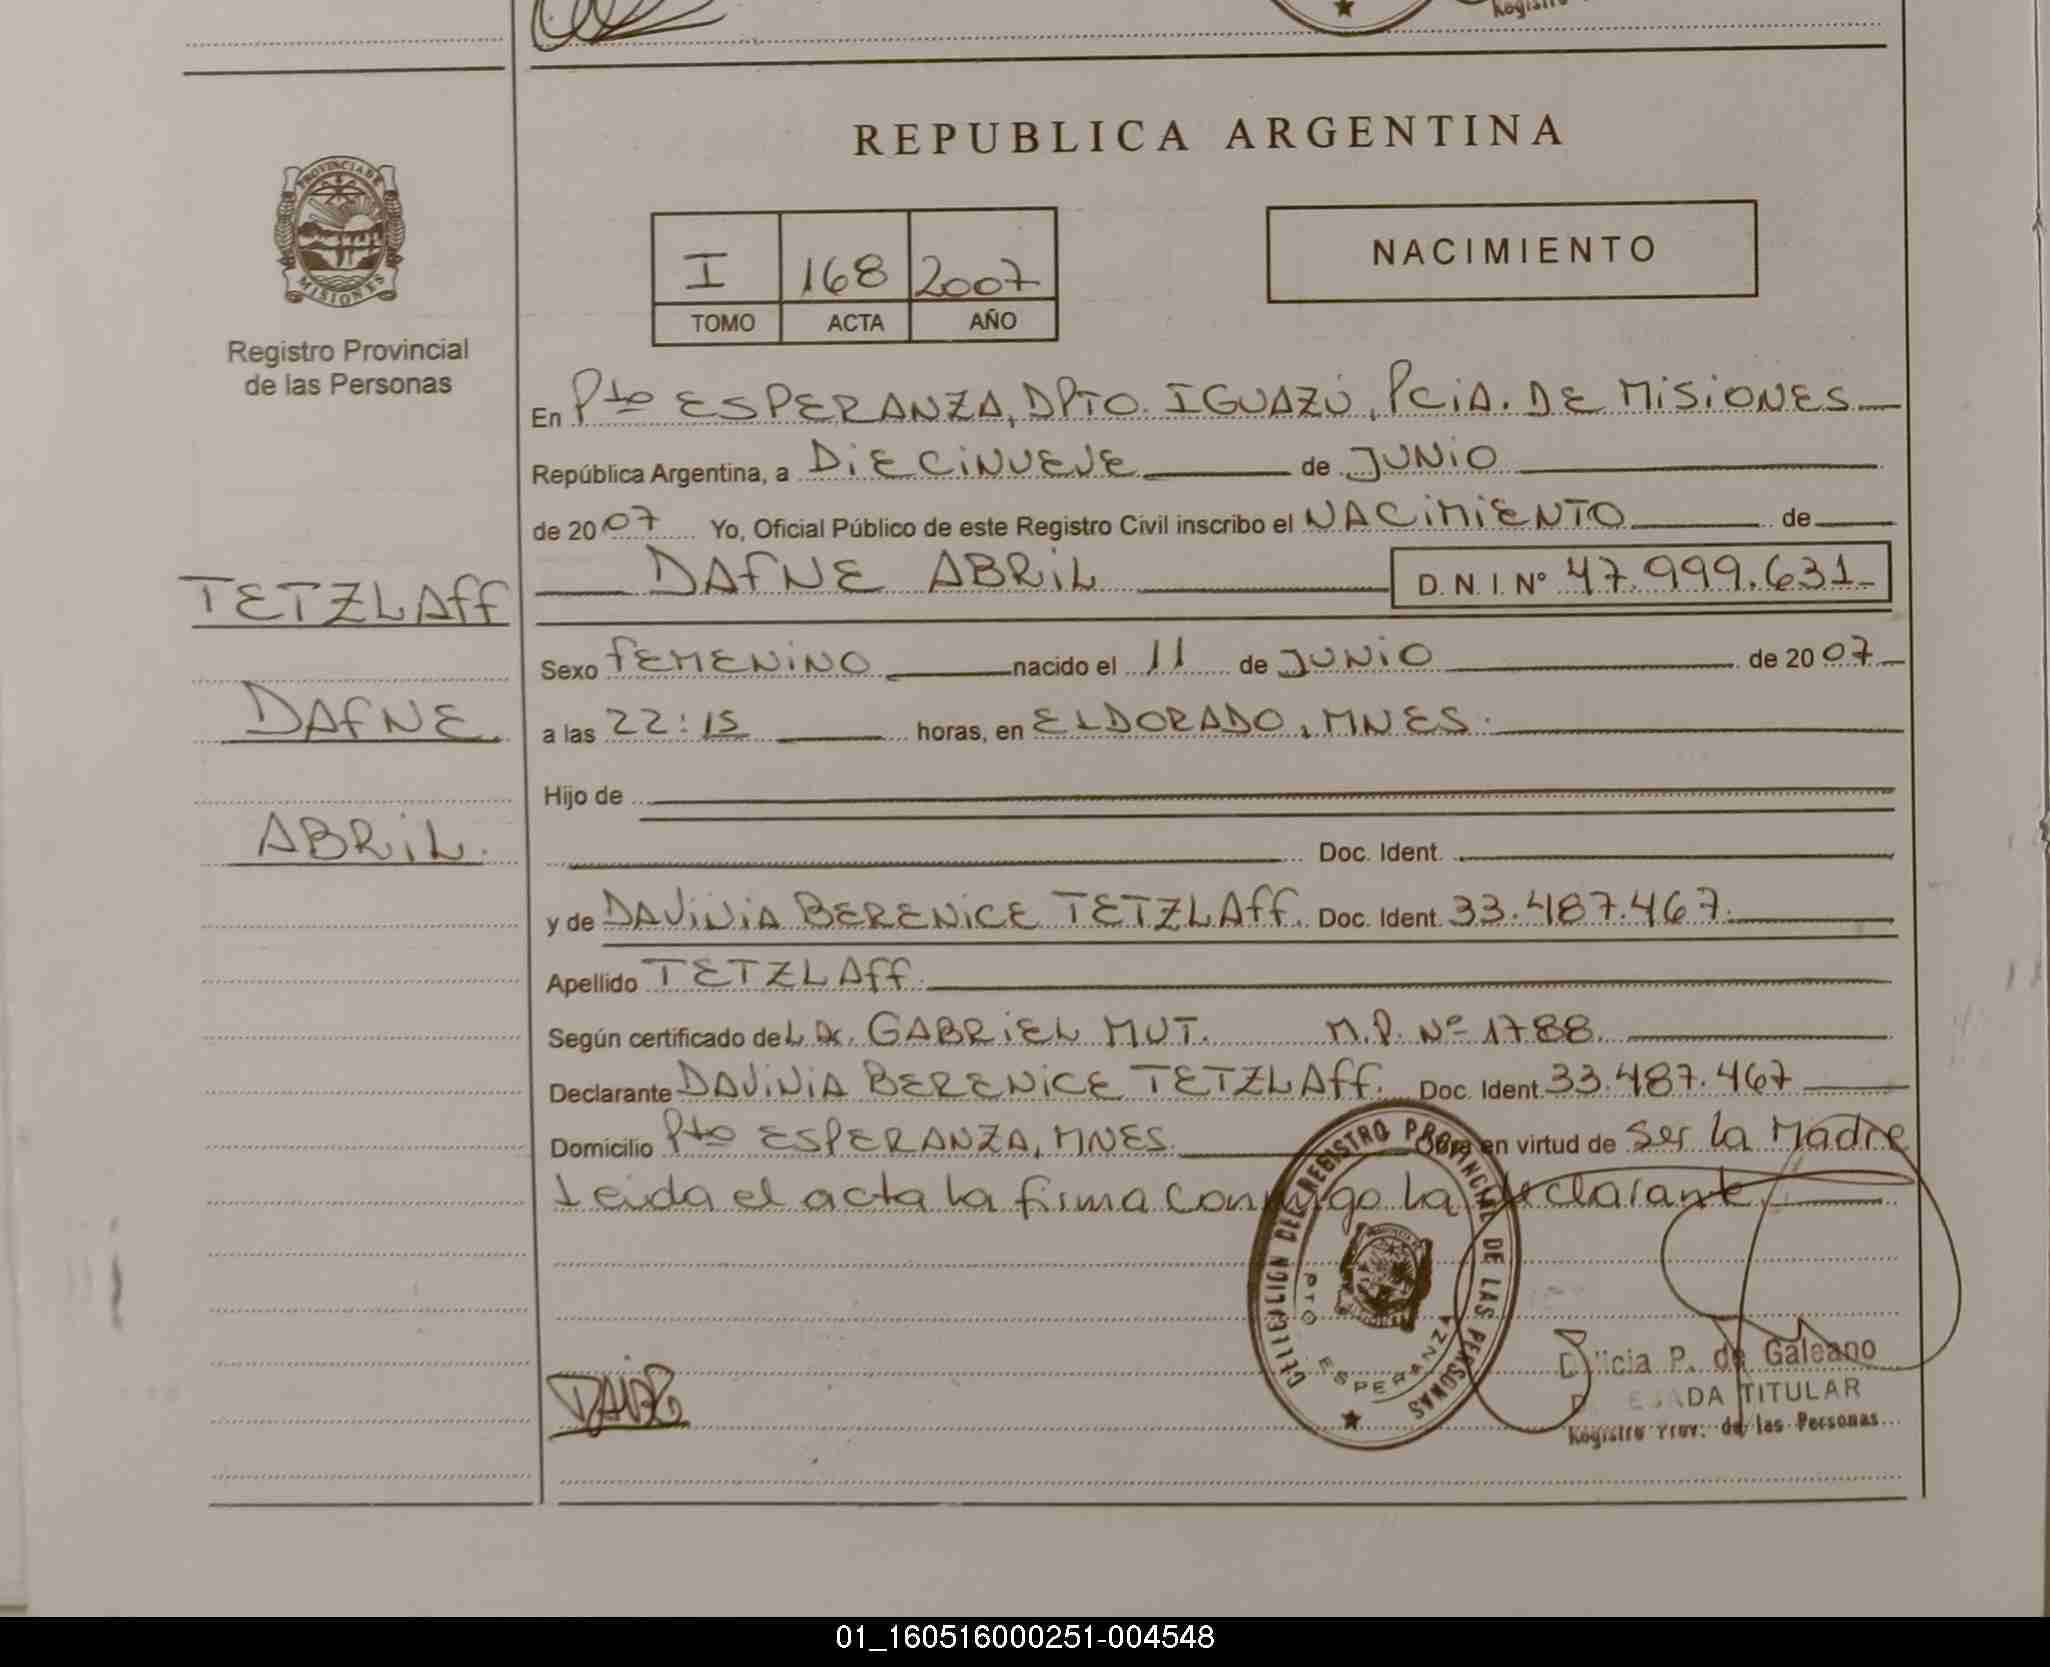 Registro
REPUBLICA ARGENTINA
PROVINCIA DE
MISIONES
Registro Provincial
de las Personas
I 168 2007
TOMO ACTA AÑO
NACIMIENTO
En Pto ESPERANZA, DPTO. IGUAZÚ, PCIA. DE MISIONES
República Argentina, a DIECINUEVE de JUNIO
de 2007 Yo, Oficial Público de este Registro Civil inscribo el NACIMIENTO de
DAFNE ABRIL D.N.I. Nº 47.999.631
TETZLAFF
DAFNE
ABRIL
Sexo FEMENINO nacido el 11 de JUNIO de 2007
a las 22:15 horas, en ELDORADO, MNES.
Hijo de
Doc. Ident.
y de DAVINIA BERENICE TETZLAFF. Doc. Ident. 33.487.467.
Apellido TETZLAFF.
Según certificado de GABRIEL MUT. M.P. Nº 1788.
Declarante DAVINIA BERENICE TETZLAFF. Doc. Ident. 33.487.467
Domicilio Pto ESPERANZA, MNES. Obra en virtud de ser la Madre
Leida el acta la firma conmigo la declarante
DELEGACION DEL REGISTRO PROVINCIAL DE LAS PERSONAS
PTO ESPERANZA
P. de Galeano
TITULAR
Registro Prov. de las Personas
01_160516000251-004548